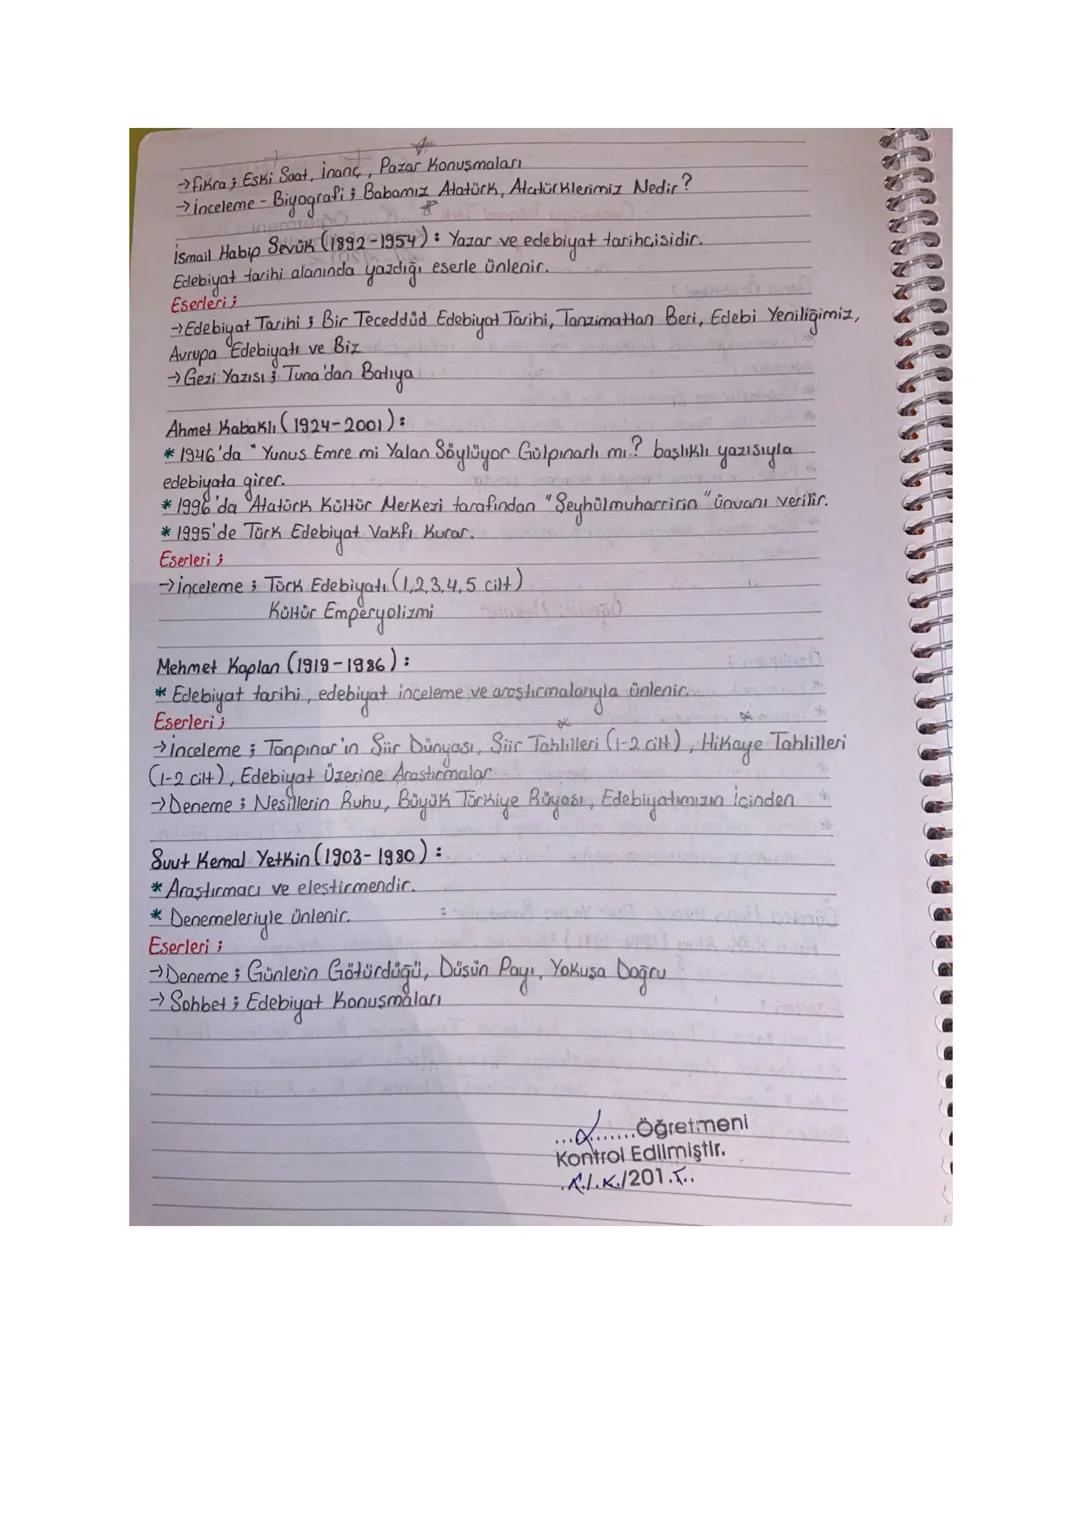 →Fıkra; Eski Saat, İnanç, Pazar Konuşmaları
→İnceleme - Biyografi; Babamız Atatürk, Atatürklerimiz Nedir?
İsmail Habip Sevük (1892-1954): Yazar ve edebiyat tarihcisidir.
Edebiyat tarihi alanında yazdığı eserle ünlenir.
Eserleri;
→Edebiyat Tarihi; Bir Teceddüd Edebiyat Tarihi, Tanzimattan Beri, Edebi Yeniliğimiz,
Avrupa Edebiyatı ve Biz
→Gezi Yazısı; Tuna'dan Batıya
Ahmet Kabaklı (1924-2001):
* 1946'da "Yunus Emre mi Yalan Söylüyor Gülpınarlı mı? başlıklı yazısıyla
edebiyata girer.
* 1996'da Atatürk Kültür Merkezi tarafından "Şeyhülmuharririn" ünvanı verilir.
* 1995'de Türk Edebiyat Vakfı Kurar.
Eserleri;
→İnceleme; Türk Edebiyatı (1,2,3,4,5 cilt)
Kültür Emperyalizmi
Mehmet Kaplan (1919-1986):
* Edebiyat tarihi, edebiyat inceleme ve araştırmalarıyla ünlenir.
Eserleri;
→İnceleme; Tanpınar'ın Şiir Dünyası, Şiir Tahlilleri (1-2 cilt), Hikaye Tahlilleri
(1-2 cilt), Edebiyat Üzerine Araştırmalar
→Deneme; Nesillerin Ruhu, Büyük Türkiye Rüyası, Edebiyatımızın İçinden
Suut Kemal Yetkin (1903-1980):
* Araştırmacı ve eleştirmendir.
* Denemeleriyle ünlenir.
Eserleri;
→Deneme; Günlerin Götürdüğü, Düşün Payı, Yokuşa Doğru
→Sohbet; Edebiyat Konuşmaları
Öğretmeni
Kontrol Edilmiştir.
/201